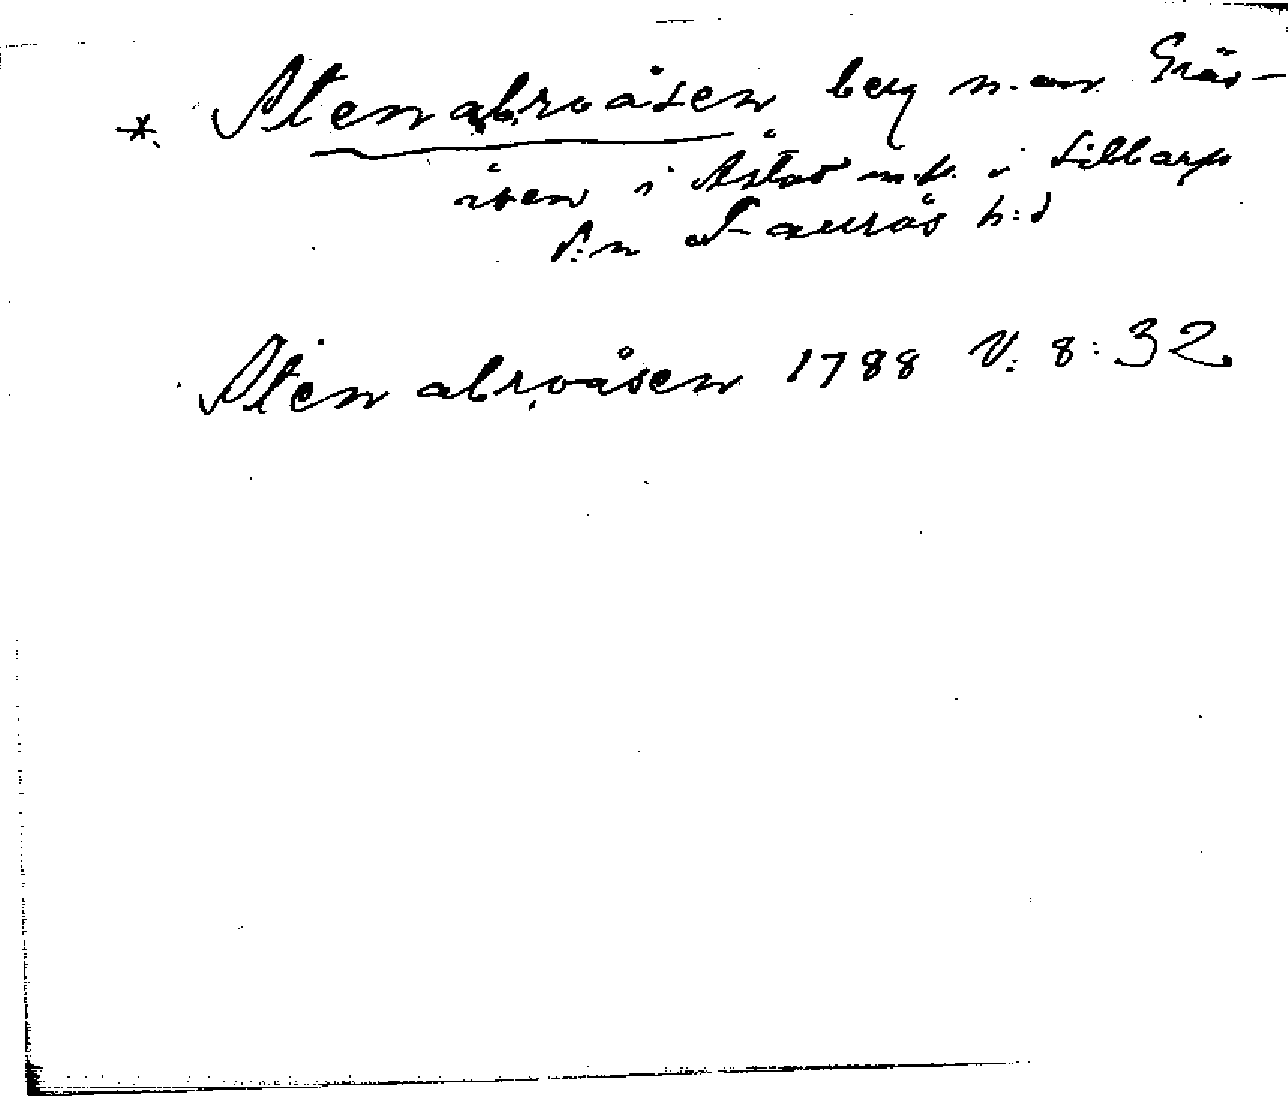 * Stenabroåsen berg n. om Gräs-
åsen i Åstad m.fl. i Sibbarp
s:n Faurås h:d
Stenabroåsen 1788 V. 8:32